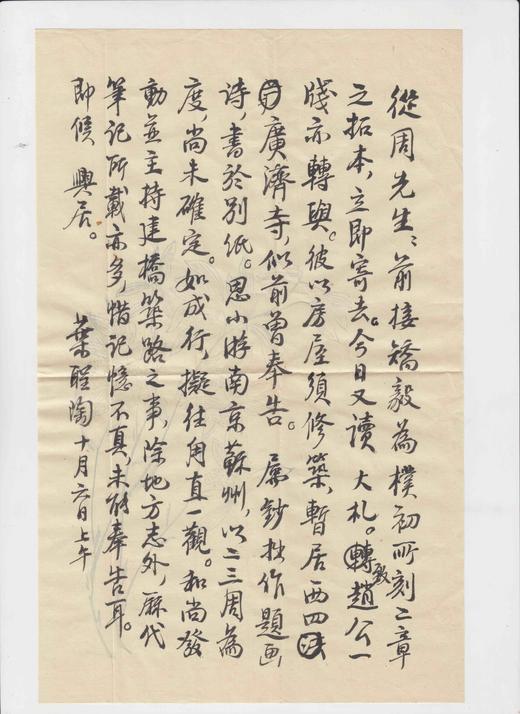 從周先生：前接矯毅為樸初所刻二章
之拓本，立即寄去。今日又讀 大札。轉致趙公一
牋亦轉與。彼以房屋須修築，暫居西四
廣濟寺，似前曾奉告。 屬鈔拙作題畫
诗，書於别紙。思小游南京蘇州，以二三周為
度，尚未確定。如成行，擬往甪直一觀。和尚發
動並主持建橋築路之事，除地方志外，歷代
筆記所載亦多，惜記憶不真，未能奉告耳。
即候 興居。
葉聖陶 十月六日上午